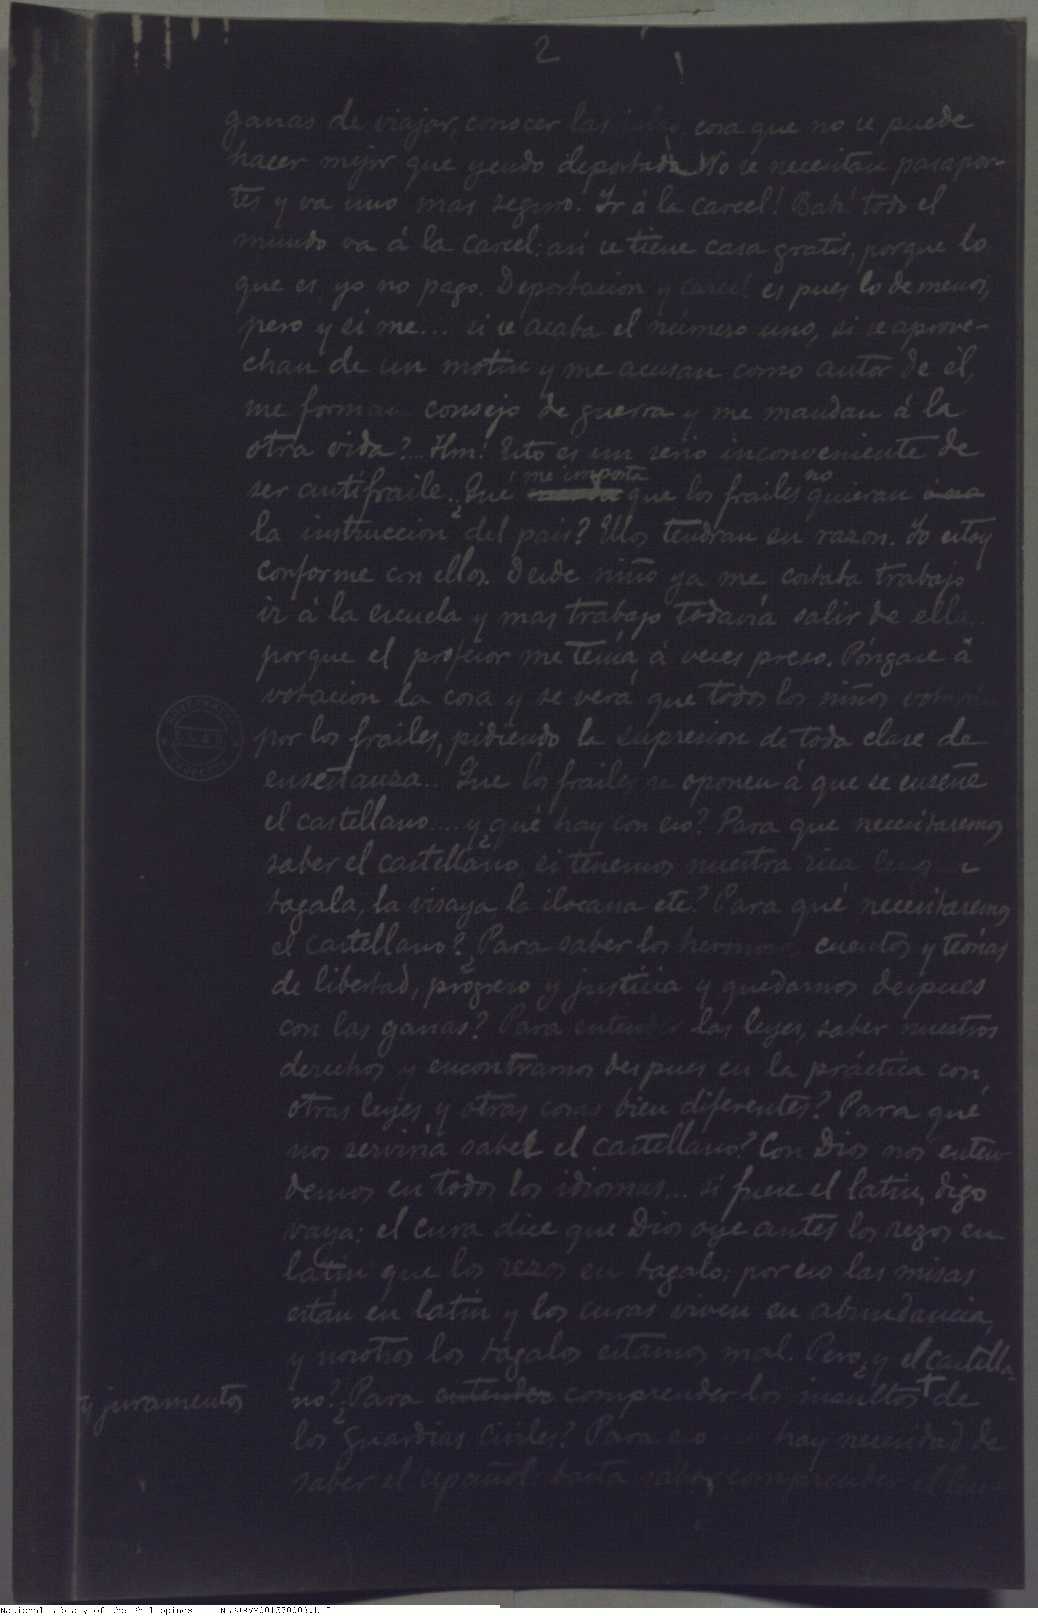 2
ganas de viajar, conocer las islas, cosa que no se puede
hacer mejor que yendo deportado. No se necesitan pasapor-
tes y va uno mas seguro. Ir á la carcel! Bah! todo el
mundo va á la carcel: asi se tiene casa gratis, porque lo
que es yo no pago. Deportacion y carcel es pues lo de menos,
pero y si me... si se acaba el número uno, si se aprove-
chan de un motin y me acusan como autor de él,
me forman consejo de guerra y me mandan á la
otra vida?... Hm! Esto es un serio inconveniente de
ser antifraile. ¿Que me importa que los frailes no quieran
la instruccion del pais? Ellos tendran su razon. Yo estoy
conforme con ellos. Desde niño ya me costaba trabajo
ir á la escuela y mas trabajo todavía salir de ella..
porque el profesor me tenía á veces preso. Póngase á
votacion la cosa y se verá que todos los niños votarán
por los frailes, pidiendo la supresion de toda clase de
enseñanza... Que los frailes se oponen á que se enseñe
el castellano.... y ¿qué hay con eso? Para que necesitaremos
saber el castellano, si tenemos nuestra rica lengua
tagala, la visaya, la ilocana etc? Para qué necesitaremos
el castellano? ¿Para saber los hermosos cuentos y teorías
de libertad, progreso y justicia y quedarnos despues
con las ganas? Para entender las leyes, saber nuestros
derechos y encontrarnos despues en la práctica con
otras leyes y otras cosas bien diferentes? Para qué
nos serviriá saber el castellano? Con Dios nos enten-
demos en todos los idiomas... si fuese el latin, digo
vaya: el cura dice que Dios oye antes los rezos en
latin que los rezos en tagalo; por eso las misas
están en latin y los curas viven en abundancia,
y nosotros los tagalos estamos mal. Pero ¿y el castella-
no? ¿Para entender comprender los insultos + de
y juramentos
los guardias civiles? Para eso no hay necesidad de
saber el español: basta saber comprender el